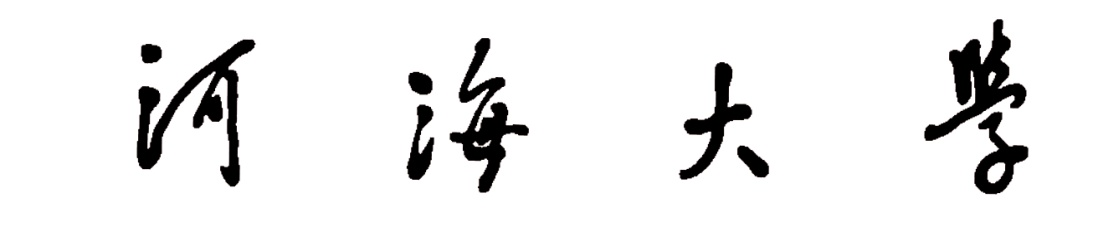 河海大學